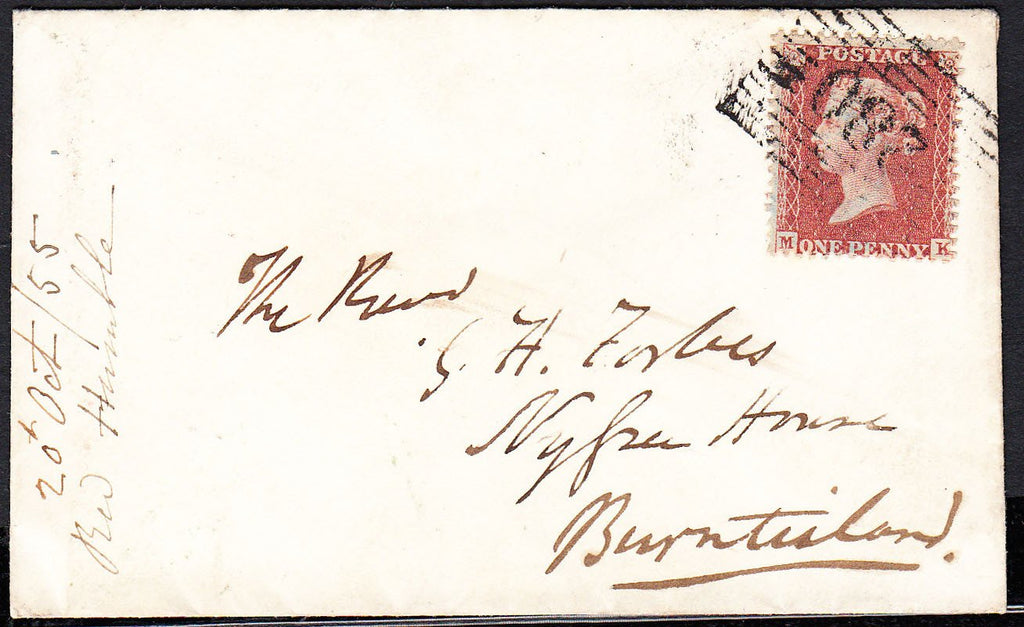 POSTAGE
M ONE PENNY K
The Revd
G. H. Forbes
Nyfree House
Burntisland.
20t Oct/55
Humble